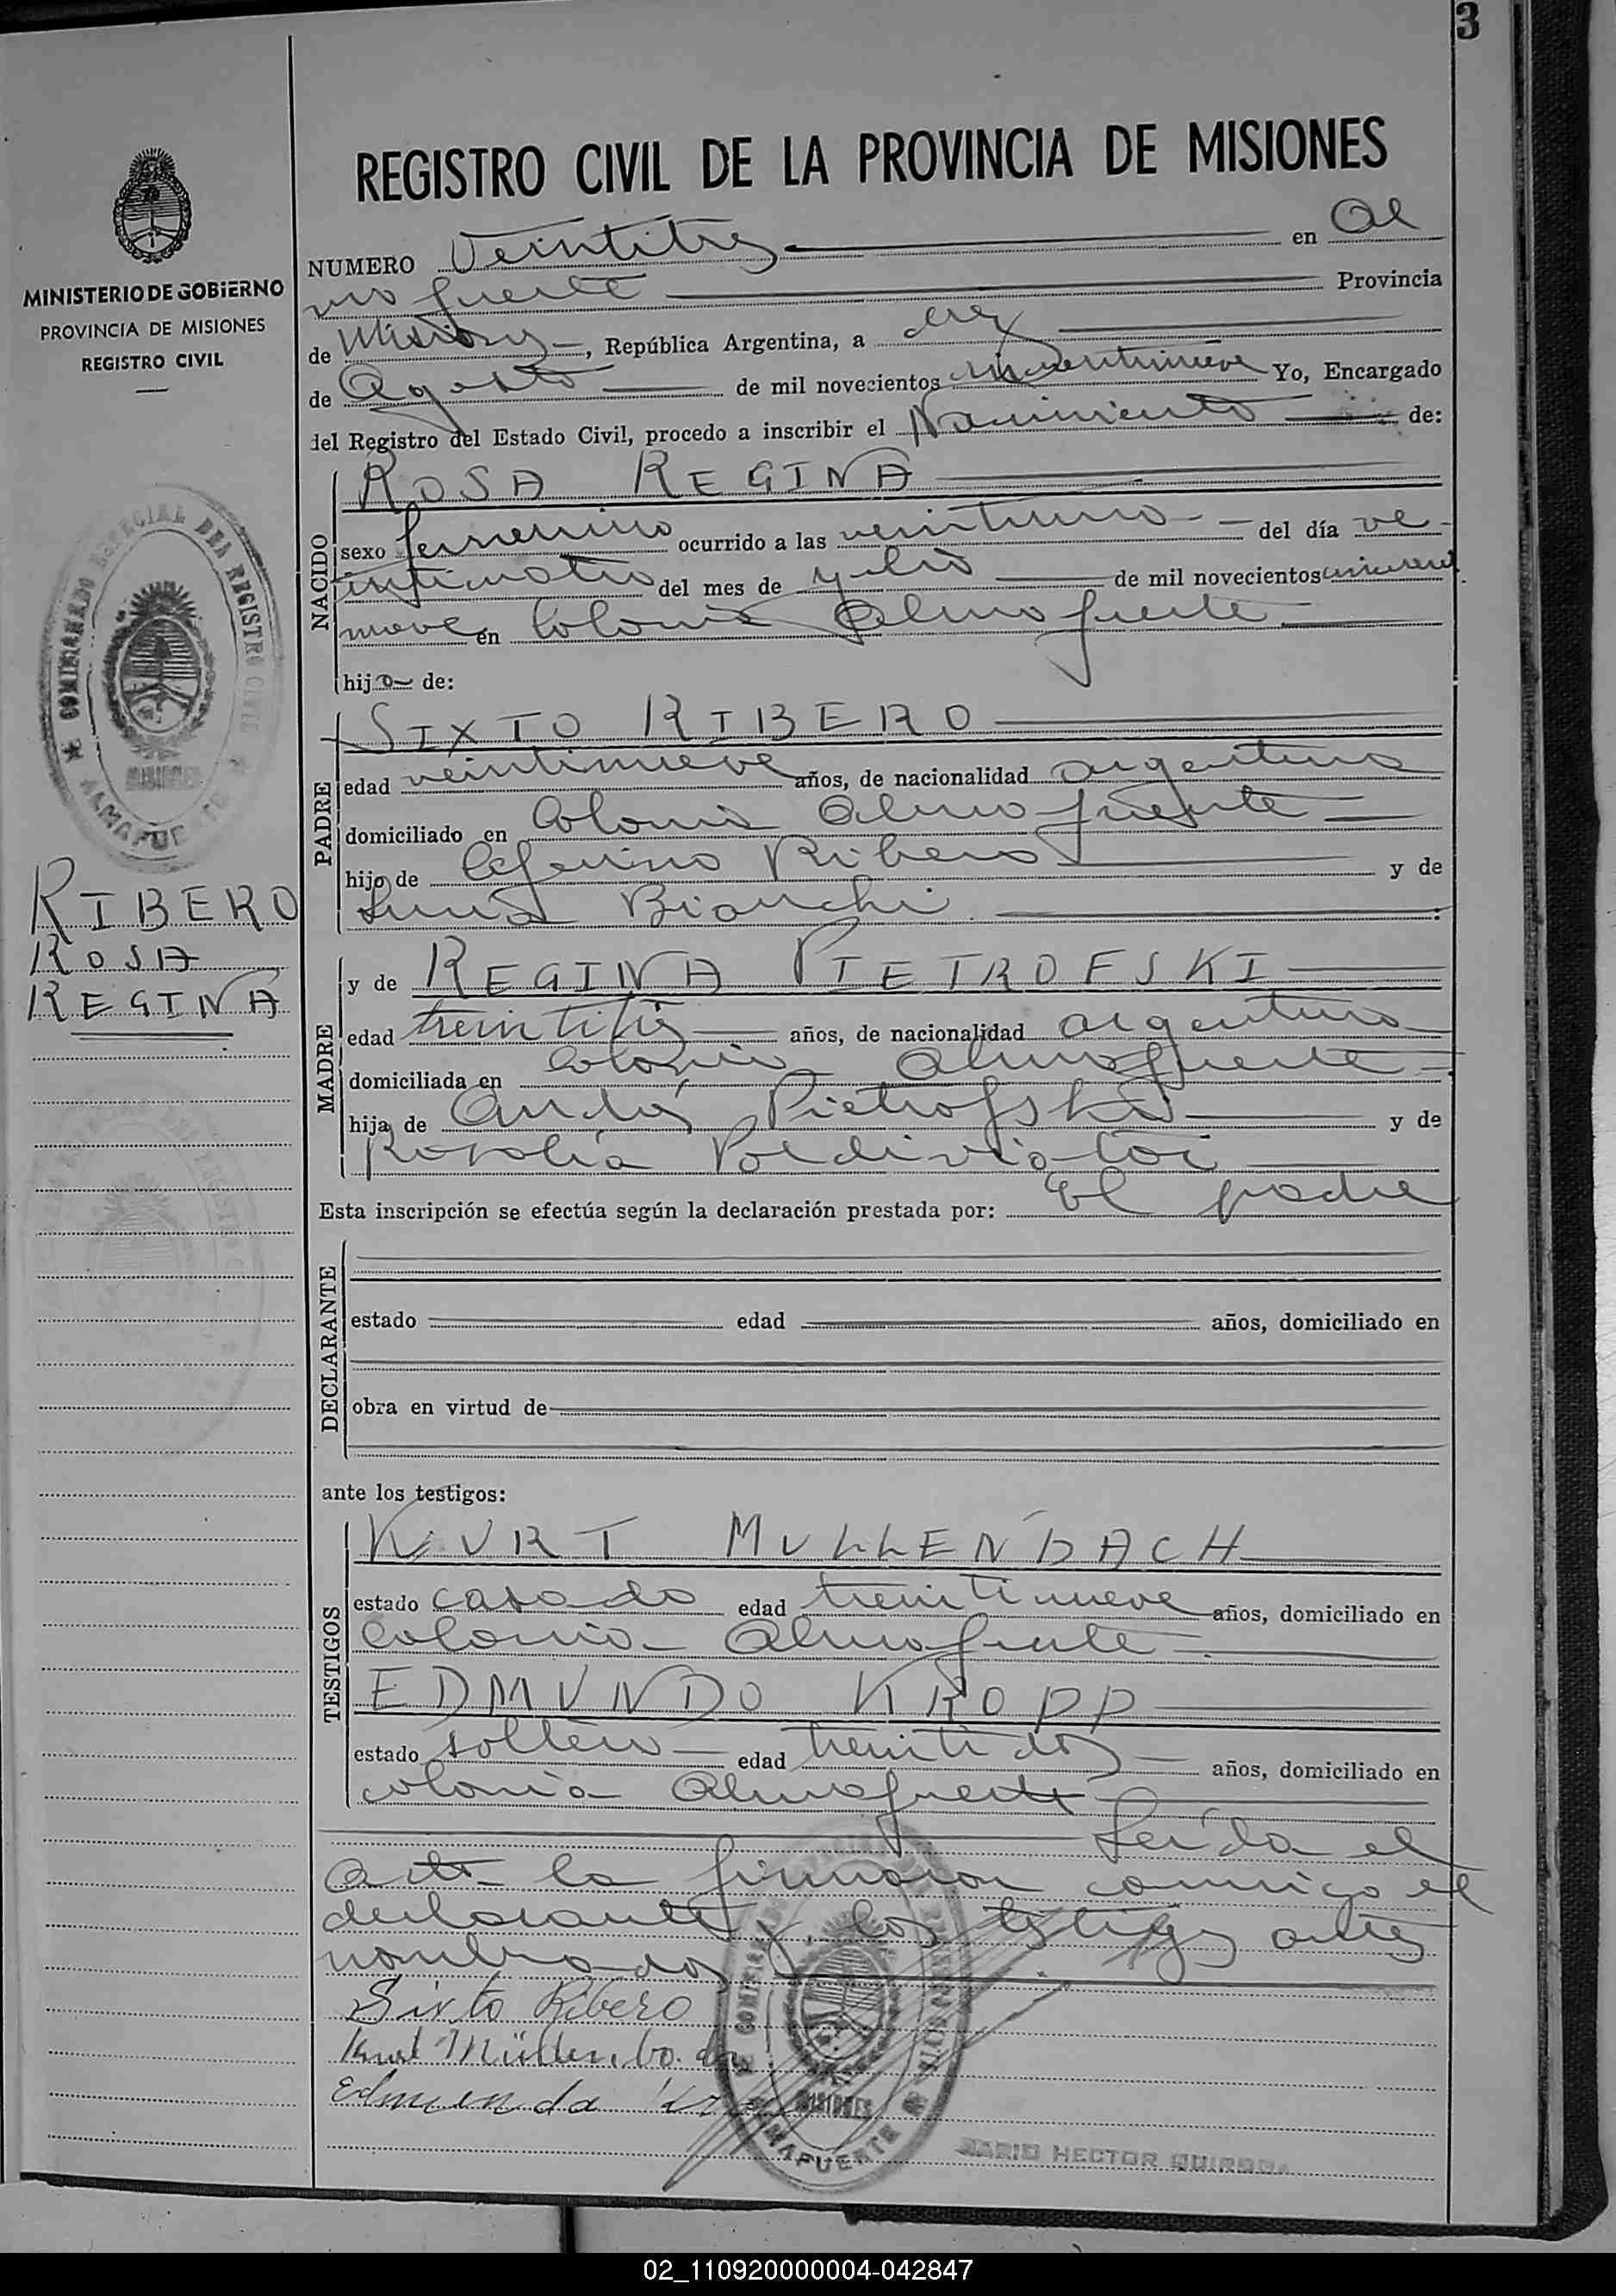 3
REGISTRO CIVIL DE LA PROVINCIA DE MISIONES
MINISTERIO DE GOBIERNO
PROVINCIA DE MISIONES
REGISTRO CIVIL
NUMERO Veintitres en Al
mafuerte Provincia
de Misiones, República Argentina, a diez
de Agosto de mil novecientos cincuentinueve Yo, Encargado
del Registro del Estado Civil, procedo a inscribir el Nacimiento de:
NACIDO
ROSA REGINA
sexo femenino ocurrido a las veintiuno del día ve
inticuatro del mes de julio de mil novecientos
nueve en Colonia Almafuerte
hija de:
PADRE
SIXTO RIBERO
edad veintinueve años, de nacionalidad argentina
domiciliado en Colonia Almafuerte
hijo de Ceferino Ribero y de
Luisa Bianchi
RIBERO
ROSA
REGINA
MADRE
y de REGINA PIETROFSKI
edad treintitres años, de nacionalidad argentina
domiciliada en Colonia Almafuerte
hija de Andrés Pietrofski y de
Rosalía
Esta inscripción se efectúa según la declaración prestada por: El padre
DECLARANTE
estado edad años, domiciliado en
obra en virtud de
ante los testigos:
TESTIGOS
KURT MULLENBACH
estado casado edad treintinueve años, domiciliado en
Colonia Almafuerte
EDMUNDO KROPP
estado soltero edad treintidos años, domiciliado en
colonia Almafuerte
Leída el
acta la firmaron conmigo el
declarante y los testigos antes
nombrados
Sixto Ribero
Kurt Müllenbach
Edmundo
MARIO HECTOR QUIROGA
02_110920000004-042847